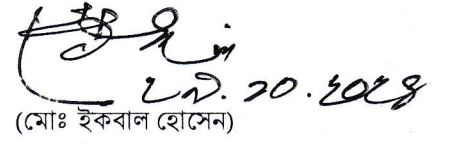 ২৯.১০.২০২৪
(মোঃ ইকবাল হোসেন)